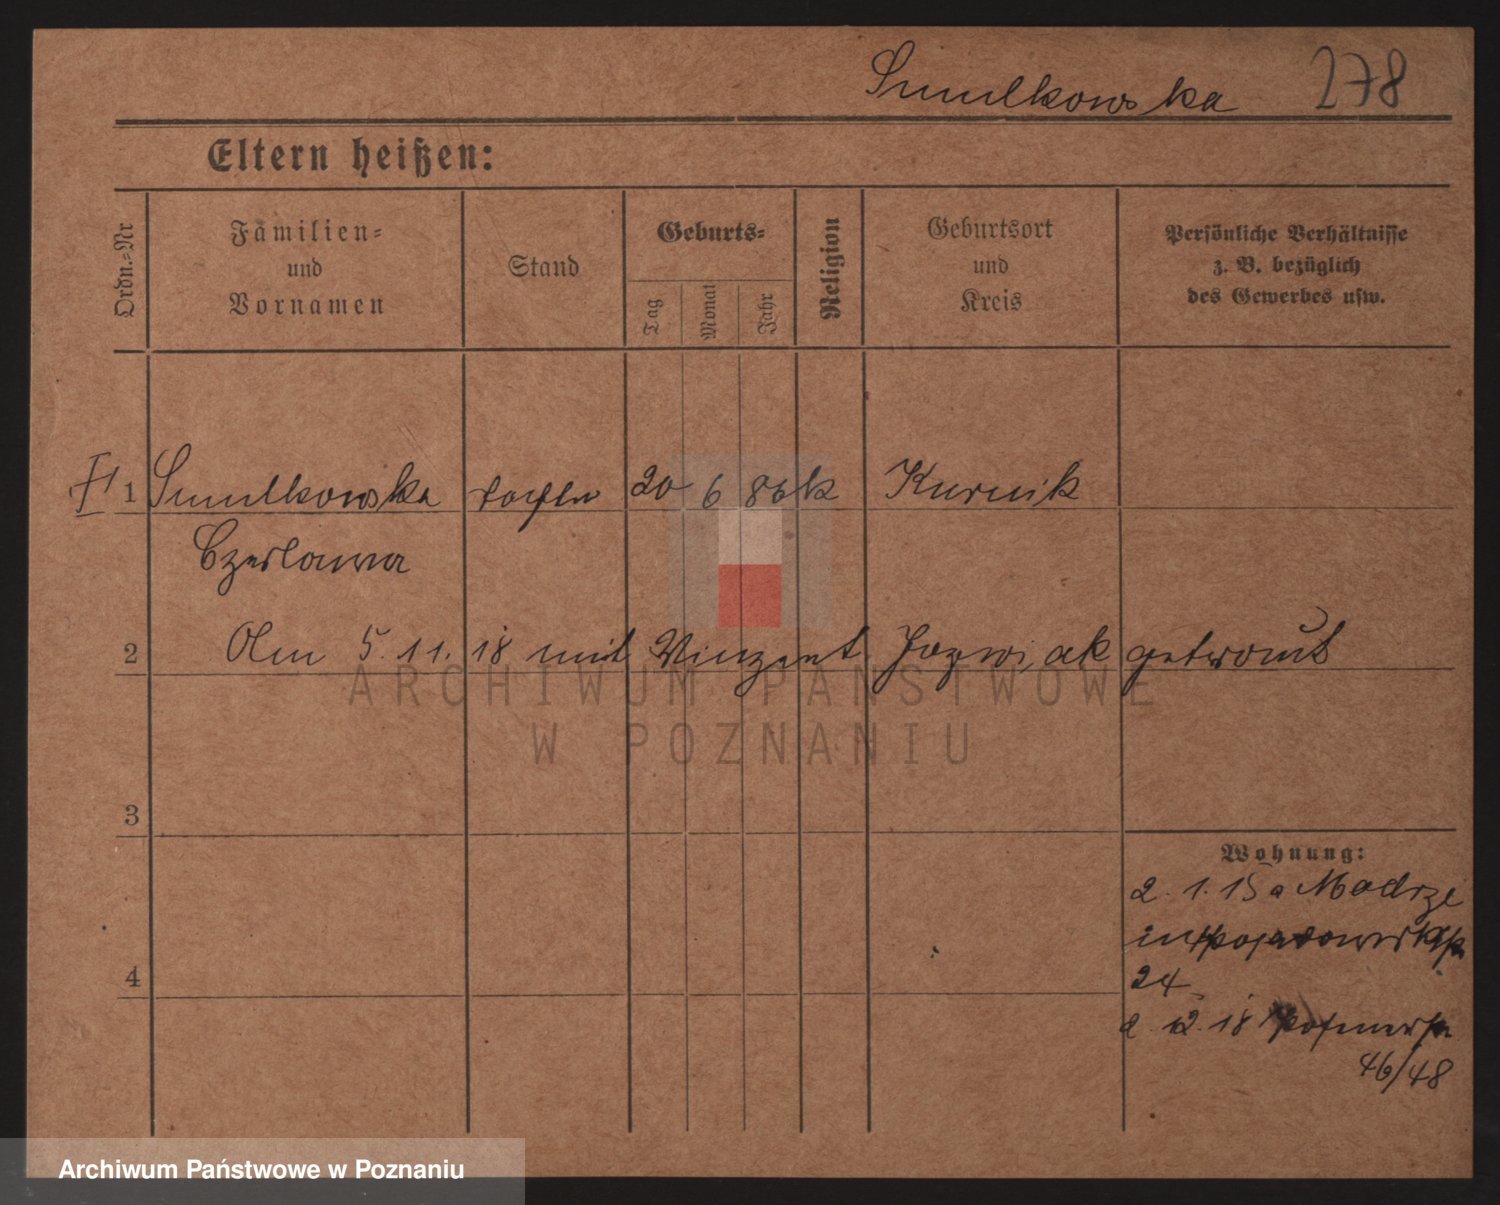 Smulkowska 278
Eltern heißen:
Ordn.=Nr
Familien=
und
Vornamen
Stand
Geburts=
Tag
Monat
Jahr
Religion
Geburtsort
und
Kreis
Persönliche Verhältnisse
z. B. bezüglich
des Gewerbes usw.
1 Smulkowska Tochter 20 6 86 k Kurnik
Czeslawa
2 Am 5. 11. 18 mit Vinzent Jozwiak getraut
3
Wohnung:
2. 1. 15 a Madrze
in
4
24
2. 12. 18 Posenerstr
46/48
ARCHIWUM PAŃSTWOWE
W POZNANIU
Archiwum Państwowe w Poznaniu